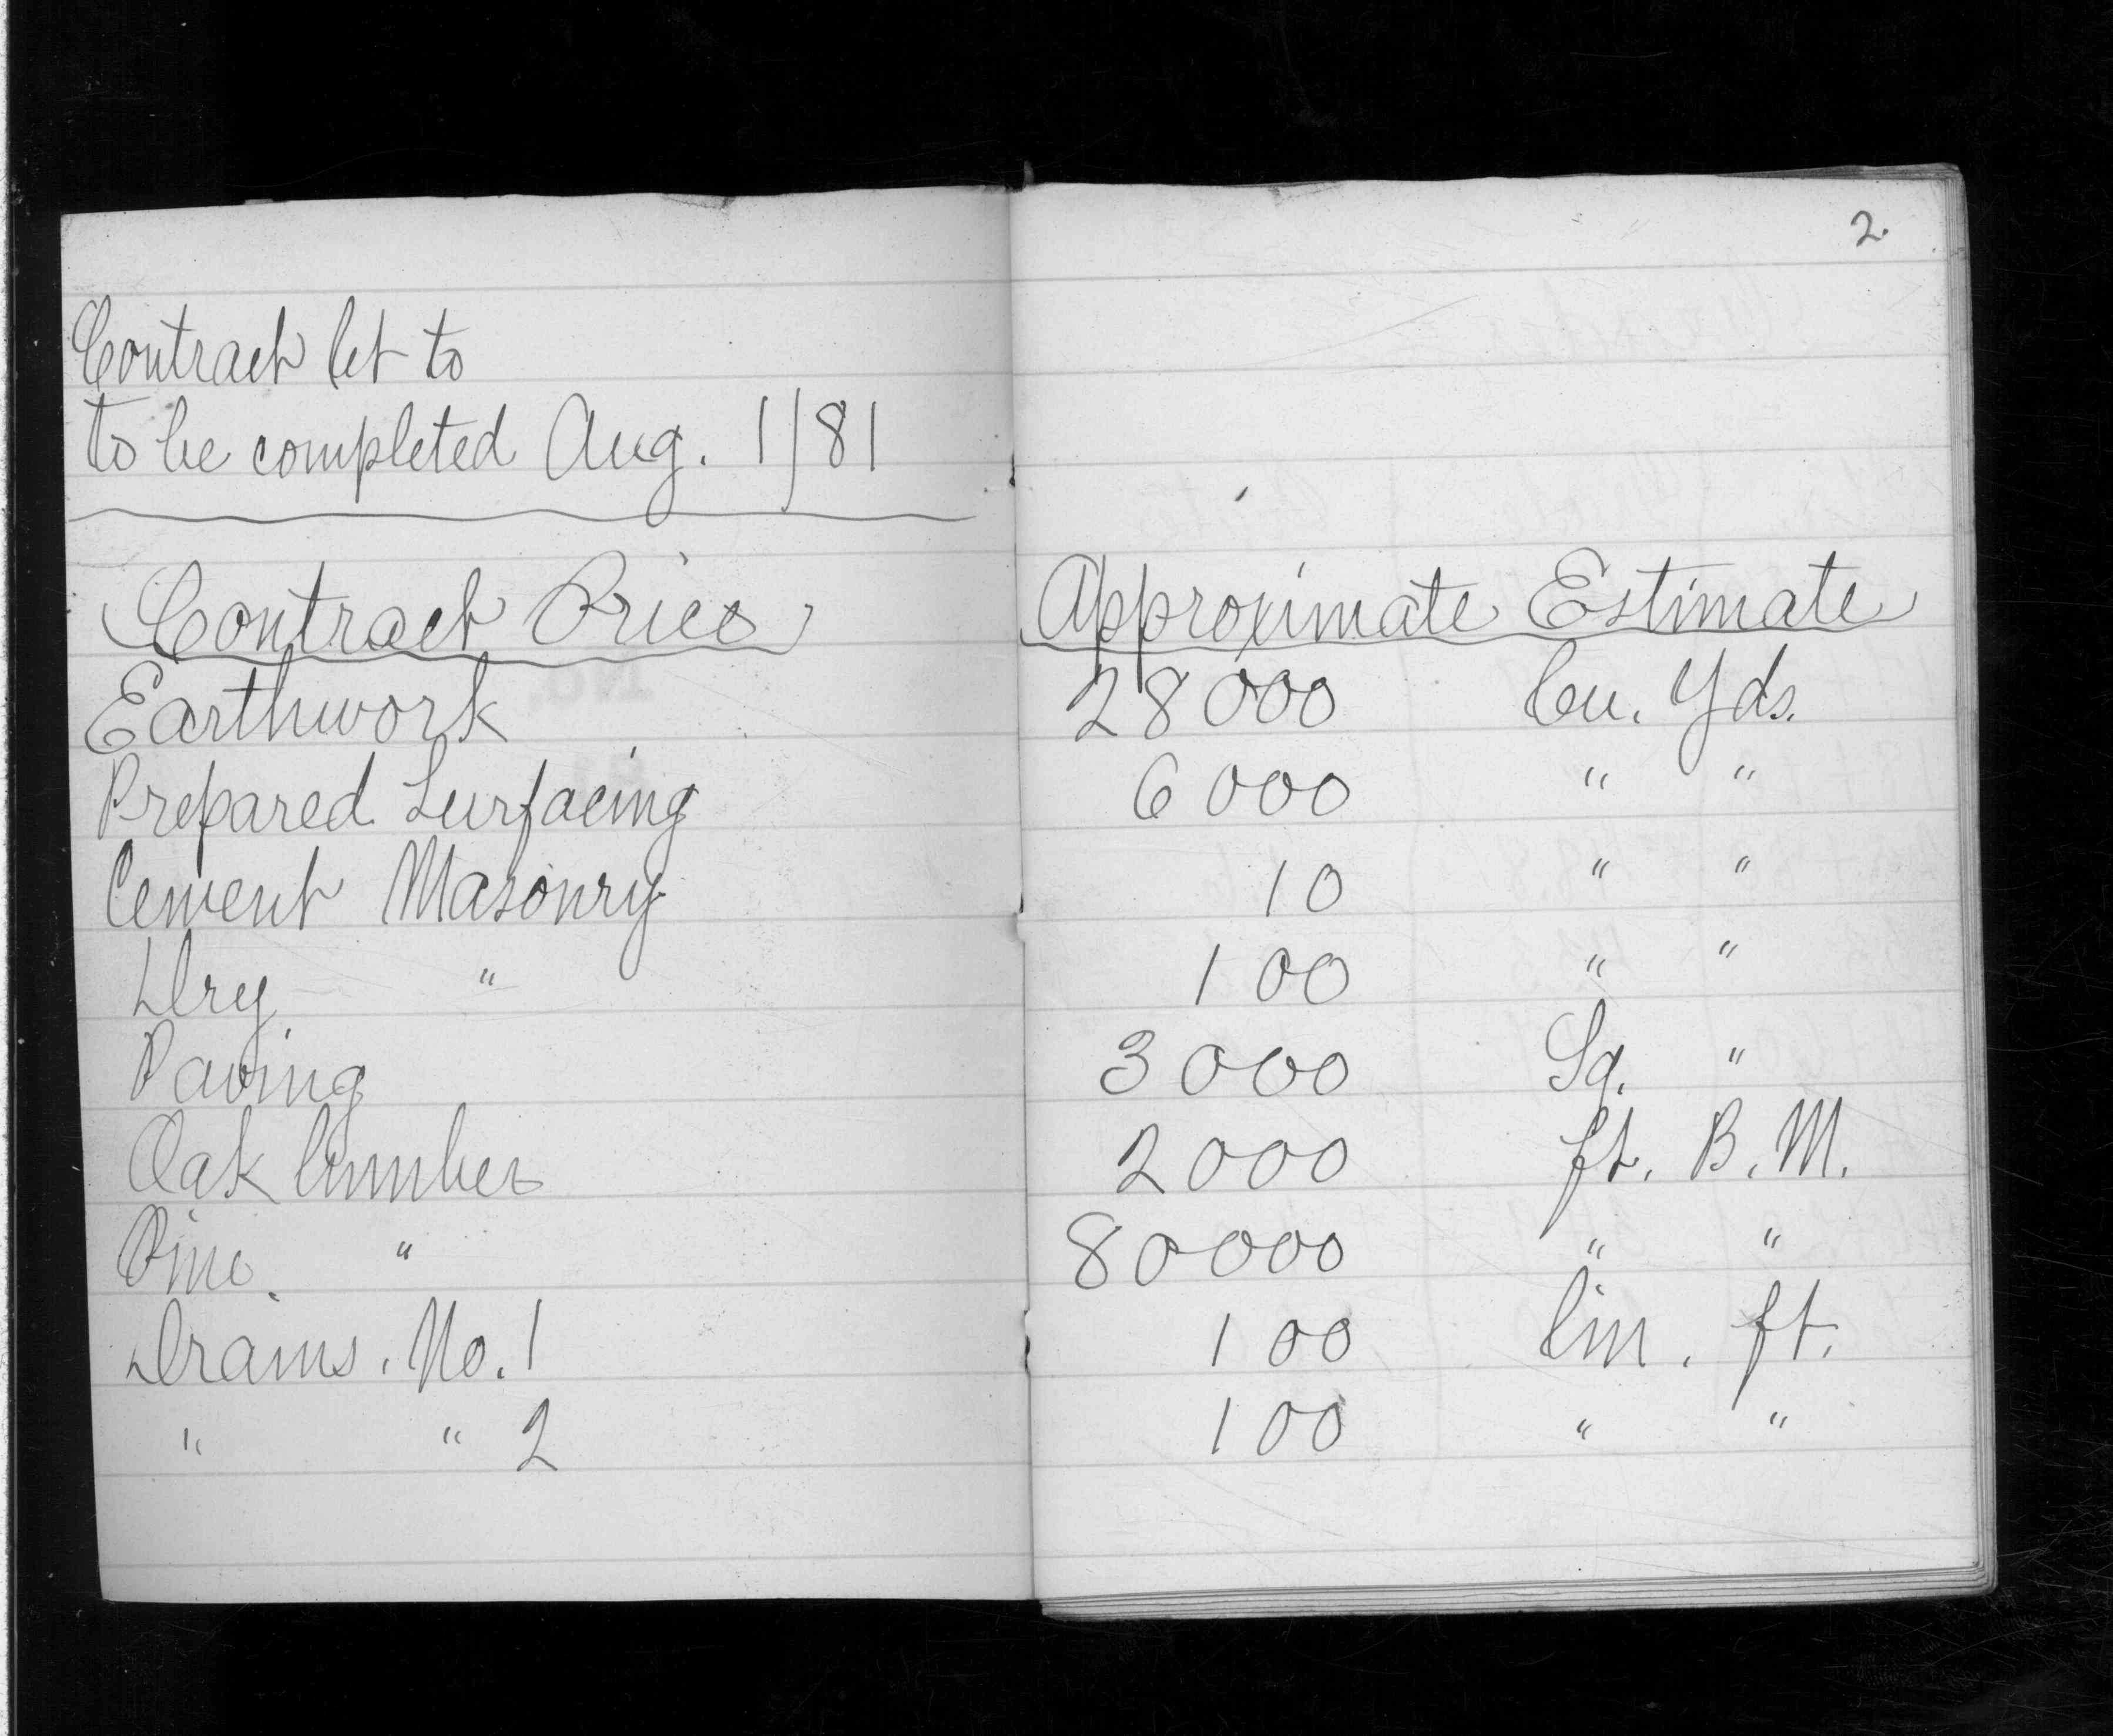 Contract let to
to be completed Aug. 1/81
Contract Price
Earthwork
Prepared Surfacing
Cement Masonry
Dry "
Paving
Oak lumber
Pine "
Drains. No. 1
" " 2
2.
Approximate Estimate
28000 Cu. Yds.
6000 " "
10 " "
100 " "
3000 Sq. "
2000 ft. B. M.
80000 " "
100 lin. ft.
100 " "